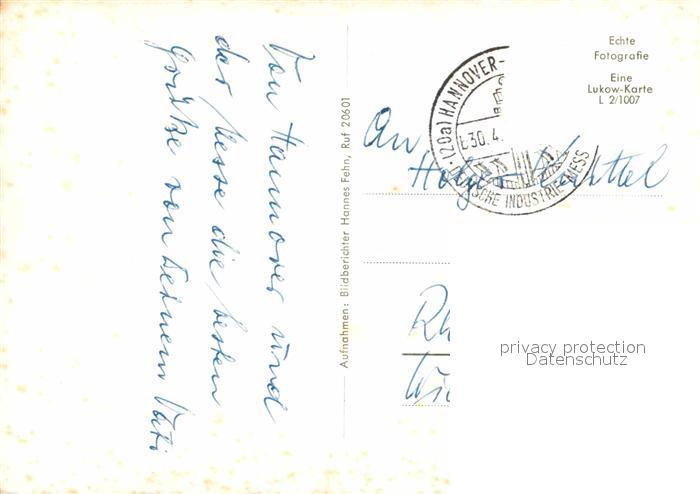 Von Hannover und
der Messe die besten
Grüße von Deinem Vati
Aufnahmen: Bildberichter Hannes Fehn, Ruf 20601
Echte
Fotografie
Eine
Lukow-Karte
L 2/1007
(20a) HANNOVER-
30. 4.
DEUTSCHE INDUSTRIE-MESS
An
Rh
privacy protection
Datenschutz